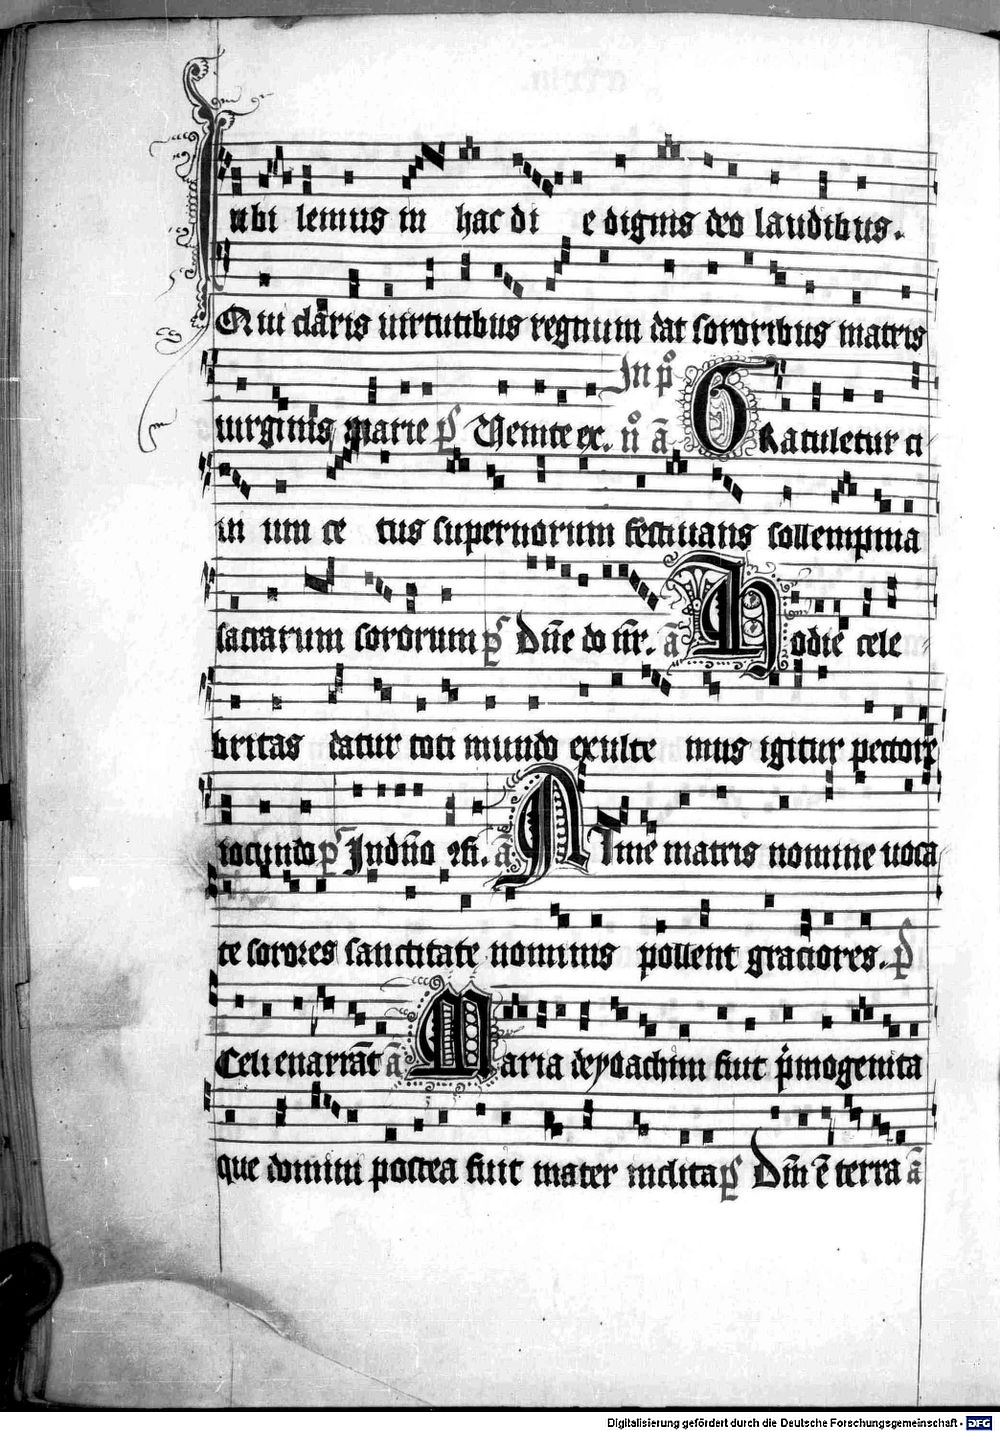 Iubi lemus in hac di e dignis deo laudibus.
Qui claris uirtutibus regnum dat sororibus matris
In pͦ
uirginis marie pͨ Uenite ex. nͦ ā Gratuletur ci
in um ce tus supernorum festiuans sollempnia
sacrarum sororum pͨ Dn̄e do nr̄. ā Hodie cele
britas datur toti mundo exulte mus igitur pectore
iocundo pͨ Indn̄o ā Anime matris nomine uoca
te sorores sanctitate nominis pollent graciores. pͨ
Celi enarrāt ā Maria de yoachim fuit p̄mogenita
que domini postea fuit mater inclita pͨ Dn̄i ē terra ā
Digitalisierung gefördert durch die Deutsche Forschungsgemeinschaft - DFG